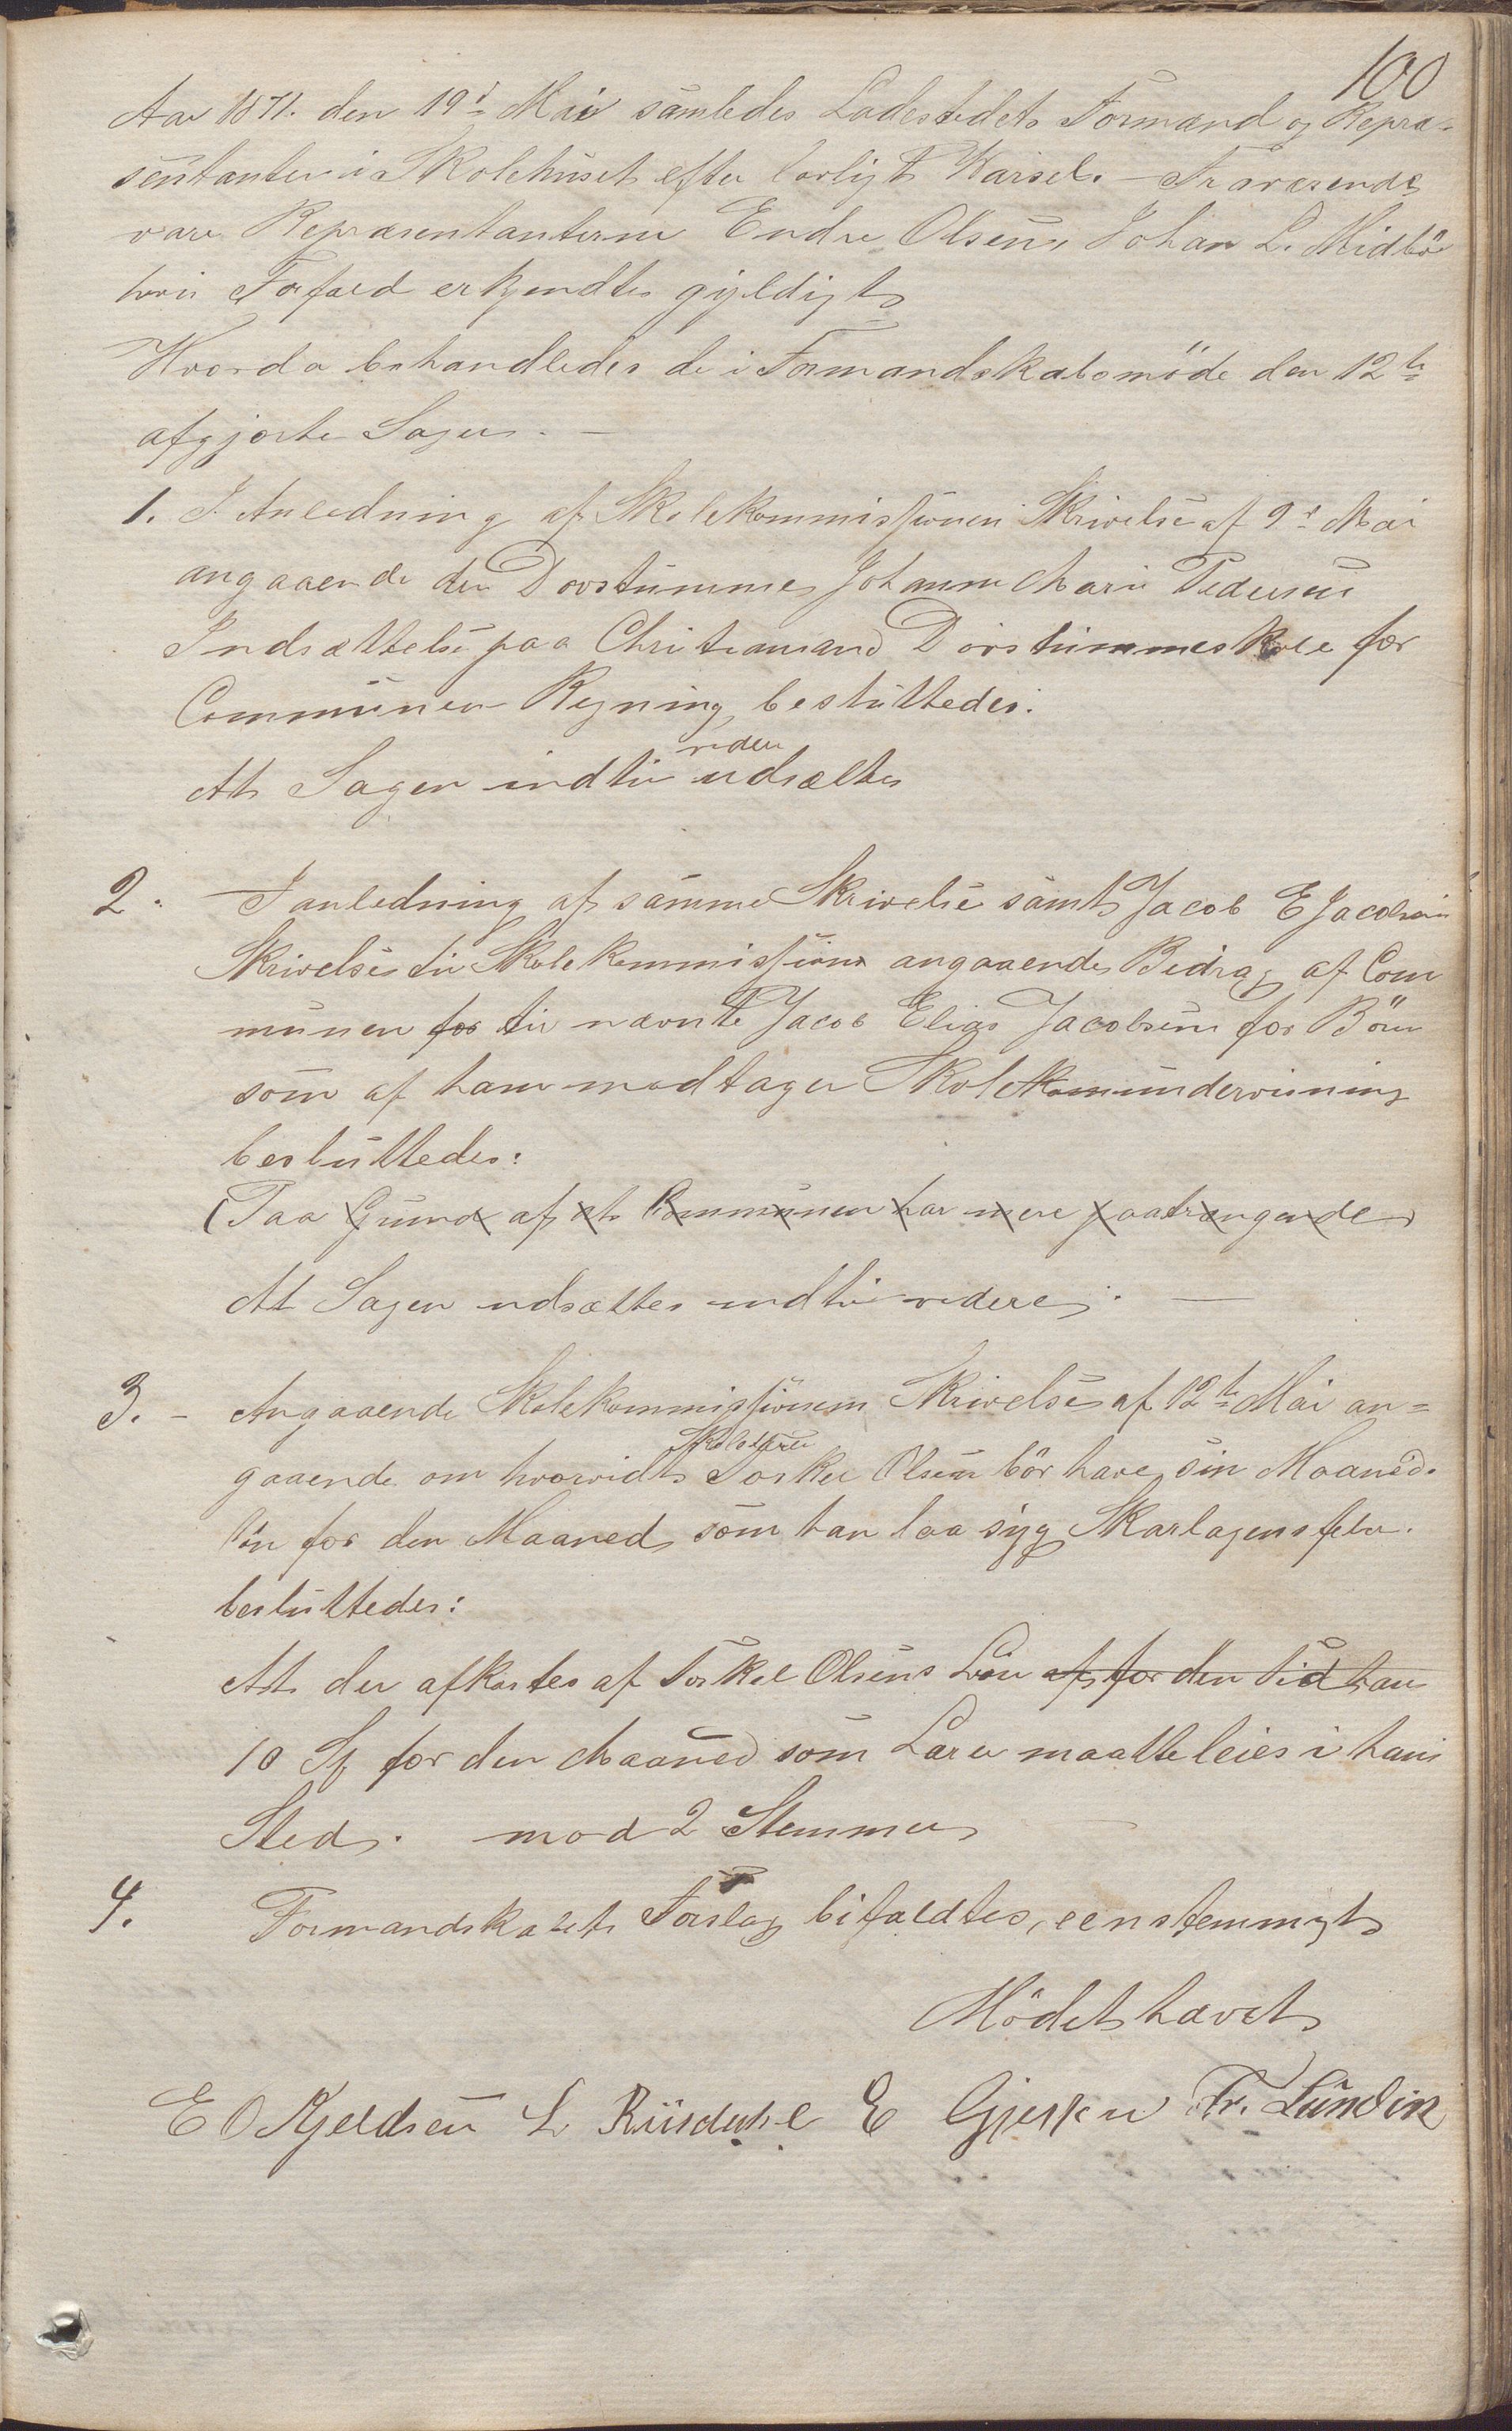 100
Aar 1871. den 19d Mai samledes Ladestedets Formænd og Repræ-
sentanter i Skolehuset efter lovligt Varsel. – Fraværende
vare Repræsentanterne Endre Olsen, Johan L. Midbö
hvis Forfald erkjendtes gyldigt
Hvorda behandledes de i Formandskabsmöde den 12te
afgjorte Sager. –
1. I Anledning af Skolekommissionens Skrivelse af 9d Mai
angaaende den Dövstumme Johanne Marie Pedersens
Indsættelse paa Christiansand Dövstummeskole for
Communens Regning, besluttedes:
At Sagen indtil videre udsættes
2. I anledning af samme Skrivelse samt Jacob E Jacobsens
Skrivelse til Skolekommissionen angaaende Bidrag af Com
munen for til nævnte Jacob Elias Jacobsen for Börn
som af ham modtager Skolekomundervisning
besluttedes:
(Paa Grund af at Communen har mere paatrængende
At Sagen udsættes indtil videre. —
3. – Angaaende Skolekommissionens Skrivelse af 12te Mai an=
gaaende om hvorvidt Skolelærer Torkel Olsen bör have sin Maaneds
lön for den Maaned som han laa syg Skarlagensfeber.
besluttedes:
At der afkortes af Torkel Olsens Lön af for den Tid han
10 Sp for den Maaned som Lærer maatte leies i hans
Sted. mod 2 Stemmer
4. Formandskabets Forslag bifaldtes, eenstemmigt
Mödet hævet
E O Kjeldsen L Riisdahl E Gjerken Fr. Lundin